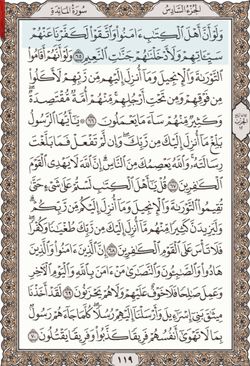 الجزء السادس سورة المائدة
وَلَوْ أَنَّ أَهْلَ ٱلْكِتَٰبِ ءَامَنُوا۟ وَٱتَّقَوْا۟ لَكَفَّرْنَا عَنْهُمْ
سَيِّـَٔاتِهِمْ وَلَأَدْخَلْنَٰهُمْ جَنَّٰتِ ٱلنَّعِيمِ ٦٥ وَلَوْ أَنَّهُمْ أَقَامُوا۟
ٱلتَّوْرَىٰةَ وَٱلْإِنجِيلَ وَمَآ أُنزِلَ إِلَيْهِم مِّن رَّبِّهِمْ لَأَكَلُوا۟
مِن فَوْقِهِمْ وَمِن تَحْتِ أَرْجُلِهِم مِّنْهُمْ أُمَّةٌ مُّقْتَصِدَةٌ
وَكَثِيرٌ مِّنْهُمْ سَآءَ مَا يَعْمَلُونَ ٦٦ يَٰٓأَيُّهَا ٱلرَّسُولُ
بَلِّغْ مَآ أُنزِلَ إِلَيْكَ مِن رَّبِّكَ وَإِن لَّمْ تَفْعَلْ فَمَا بَلَّغْتَ
رِسَالَتَهُۥ وَٱللَّهُ يَعْصِمُكَ مِنَ ٱلنَّاسِ إِنَّ ٱللَّهَ لَا يَهْدِى ٱلْقَوْمَ
ٱلْكَٰفِرِينَ ٦٧ قُلْ يَٰٓأَهْلَ ٱلْكِتَٰبِ لَسْتُمْ عَلَىٰ شَىْءٍ حَتَّىٰ
تُقِيمُوا۟ ٱلتَّوْرَىٰةَ وَٱلْإِنجِيلَ وَمَآ أُنزِلَ إِلَيْكُم مِّن رَّبِّكُمْ
وَلَيَزِيدَنَّ كَثِيرًا مِّنْهُم مَّآ أُنزِلَ إِلَيْكَ مِن رَّبِّكَ طُغْيَٰنًا وَكُفْرًا
فَلَا تَأْسَ عَلَى ٱلْقَوْمِ ٱلْكَٰفِرِينَ ٦٨ إِنَّ ٱلَّذِينَ ءَامَنُوا۟ وَٱلَّذِينَ
هَادُوا۟ وَٱلصَّٰبِـُٔونَ وَٱلنَّصَٰرَىٰ مَنْ ءَامَنَ بِٱللَّهِ وَٱلْيَوْمِ ٱلْءَاخِرِ
وَعَمِلَ صَٰلِحًا فَلَا خَوْفٌ عَلَيْهِمْ وَلَا هُمْ يَحْزَنُونَ ٦٩ لَقَدْ أَخَذْنَا
مِيثَٰقَ بَنِىٓ إِسْرَٰٓءِيلَ وَأَرْسَلْنَآ إِلَيْهِمْ رُسُلًا كُلَّمَا جَآءَهُمْ رَسُولٌۢ
بِمَا لَا تَهْوَىٰٓ أَنفُسُهُمْ فَرِيقًا كَذَّبُوا۟ وَفَرِيقًا يَقْتُلُونَ ٧٠
١١٩